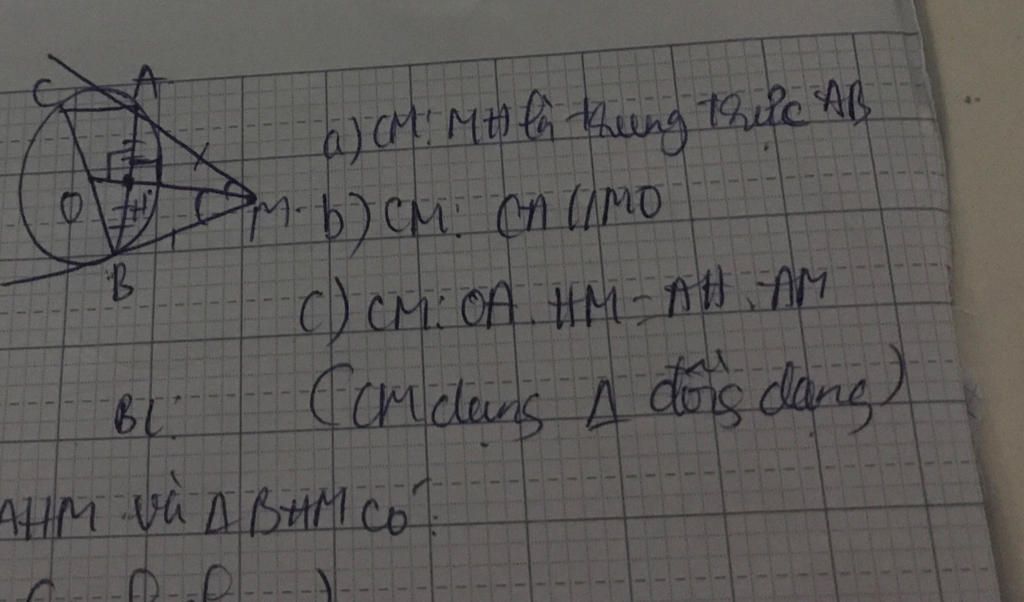 C A
O H M
B
a) CM: MH là trung trực AB
b) CM: CA // MO
c) CM: OA. HM = AH. AM
(CM dùng Δ đồng dạng)
BL:
AHM và Δ BHM có: